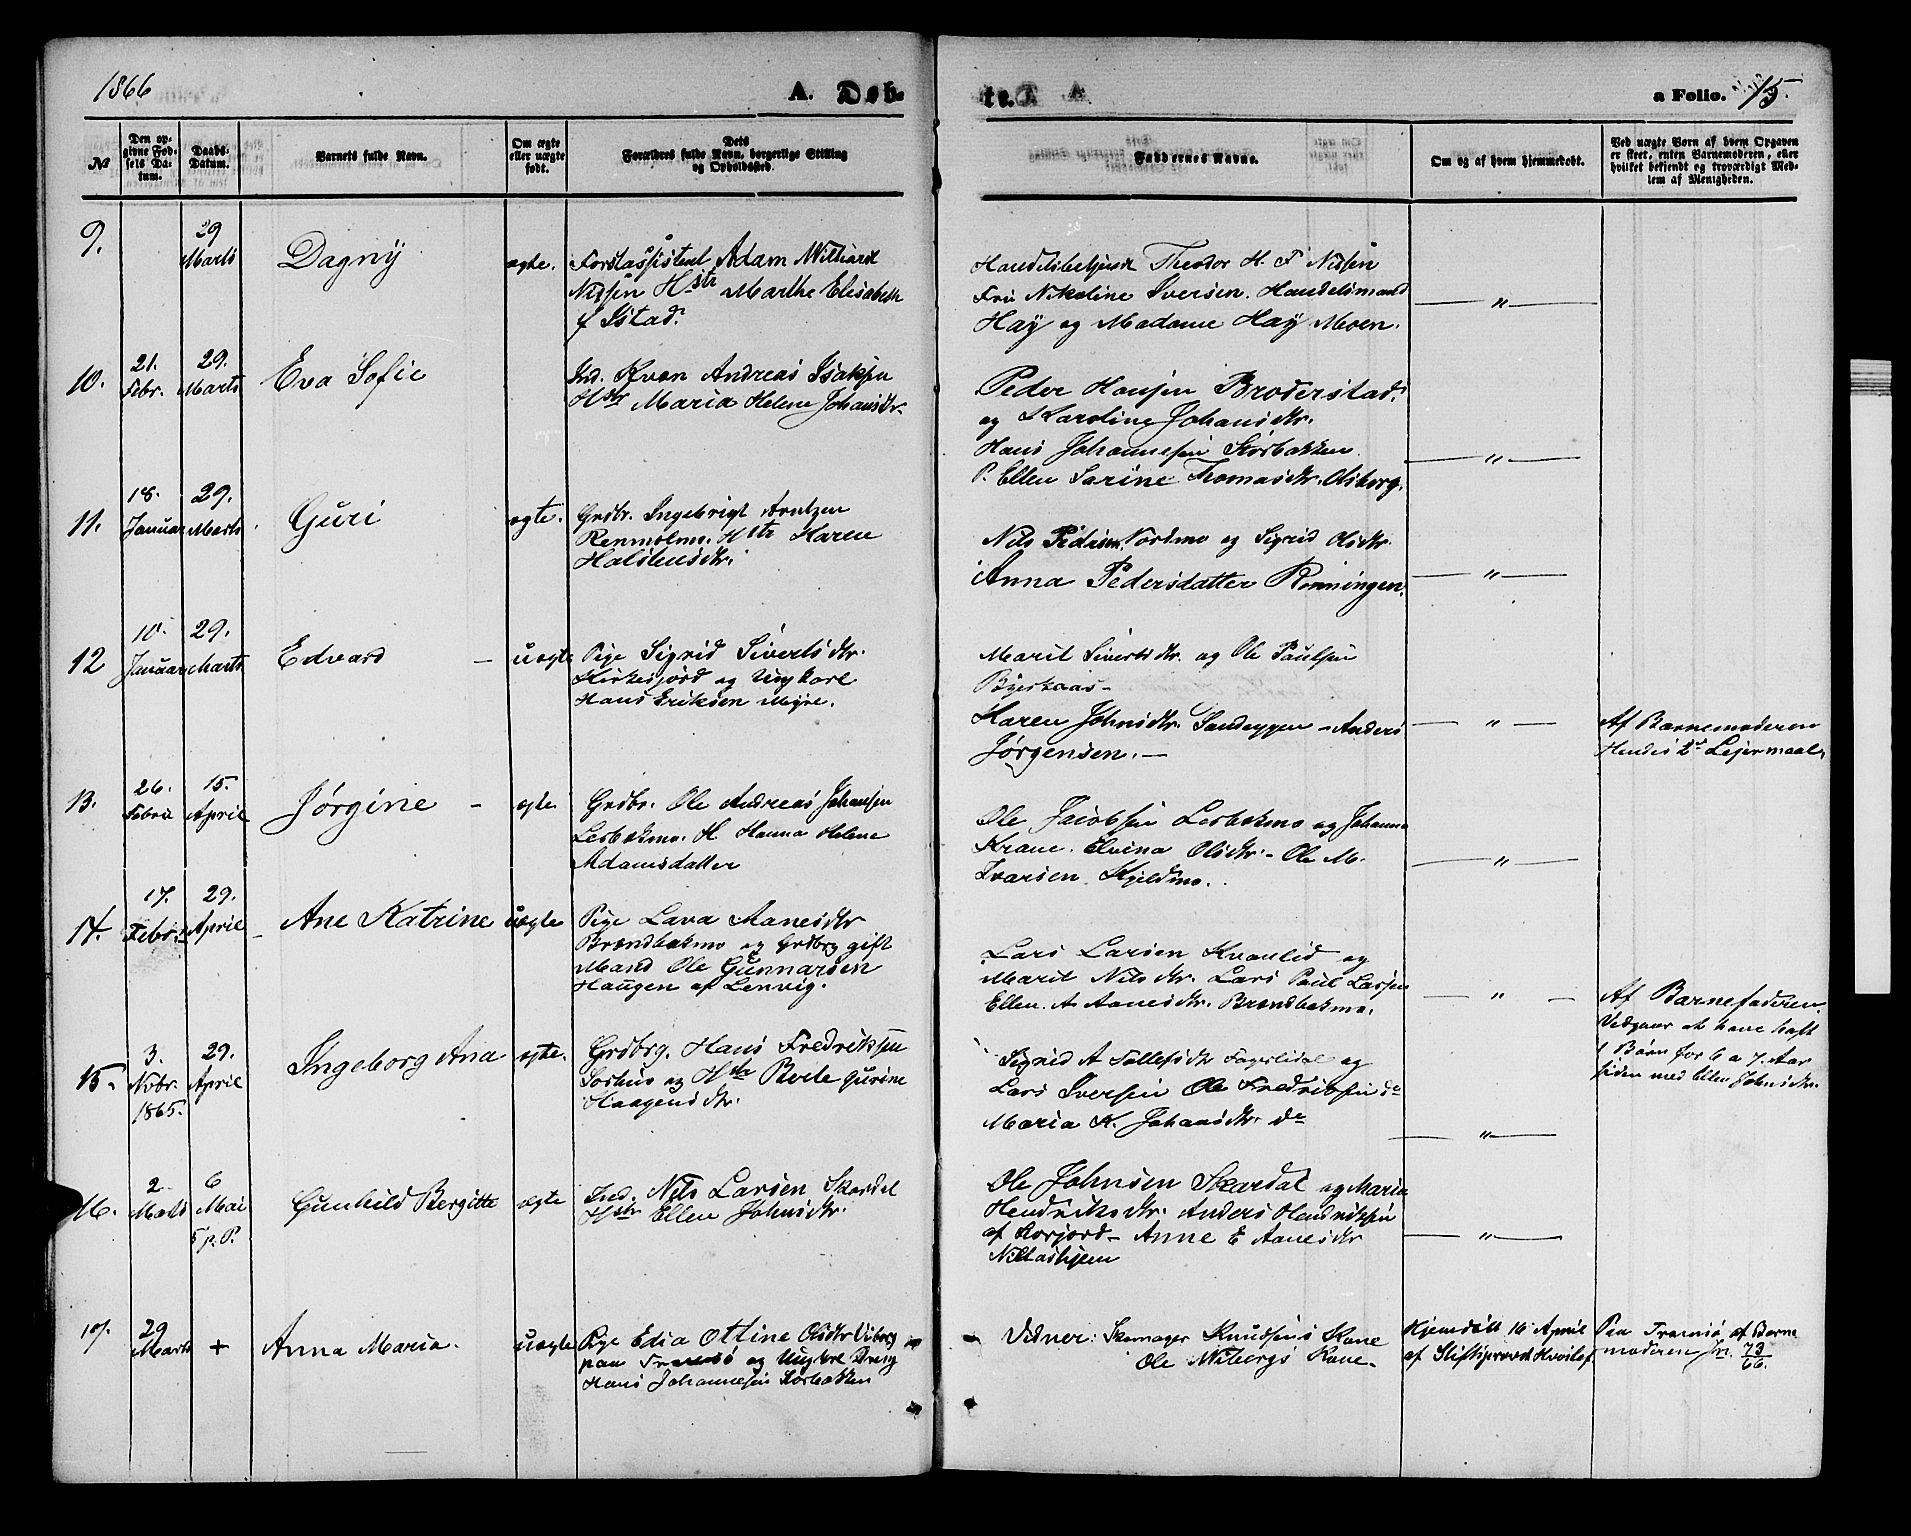 1866
A. Døb-
te.
a Folio. 15.
No
Den opgivne Fødsels Datum.
Daabs-Datum.
Barnets fulde Navn.
Om ægte eller uægte født.
Dets Forældres fulde Navn, borgerlige Stilling og Opholdssted.
Faddernes Navne.
Om og af hvem hjemmedøbt.
Ved uægte Børn af hvem Opgaven er skeet, enten Barnemoderen, eller hvilket bekjendt og troværdigt Medlem af Menigheden.
9.
29 Marts
Dagny
ægte.
Forstassistent Adam Williard
Nissen Hstr Marthe Elisabeth
f Istad.
Handelsbetjent Theodor H. F Nissen
Frü Nikoline Iversen. Handelsmand
Haÿ og Madame Haÿ Moen.
— " —
10.
21. Febr.
29. Marts
Eva Sofie
Ind. Kvæn Andreas Isaksen
Hstr Maria Helene Johansdtr.
Peder Hansen Broderstad.
og Karoline Johansdtr.
Hans Johannesen Storbakken
P. Ellen Sarine Thomasdtr. Olsborg.
— " —
11.
18. Januar
29. Marts
Guri
ægte.
Grdbr. Ingebrigt Arntzen
Renmolmo. Hstr Karen
Halstensdtr.
Nils Pedersen Nordmo og Sigrid Olsdtr.
Anna Pedersdatter Rønningen.
— " —
12
10. Januar
29. Marts
Edvard
uægte
Pige Sigrid Sivertsdtr.
Kirkesjord og Ungkarl
Hans Eriksen Myre.
Marit Sivertsdtr. og Ole Paulsen
Bjerkaas-
Karen Johnsdtr. Sandeggen - Anders
Jørgensen. —
— " —
Af Barnemoderen
Hendes 2det Lejermaal.
13.
26. Febru
15. April
Jørgine
ægte
Grdbr. Ole Andreas Johansen
Lesbakmo. H. Hanna Helene
Adamsdatter
Ole Jacobsen Lesbakmo og Johanna
Krane. Elvina Olsdtr. - Ole M.
Ivarsen Kjeldmo.
— " —
14.
17. Febr.
29. April
Ane Katrine
uægte
Pige Lava Aanesdtr
Brandbakmo og Grdbrg gift
Mand Ole Gunnarsen
Haugen af Lenvig.
Lars Larsen Kvanlid og
Marit Nilsdtr. Lars Paul Larsen
Ellen. A Aanesdtr. Brandbakmo.
— " —
Af Barnefaderen.
Vedgaar at have haft
1 Børn for 6 a 7. Aar
siden med Ellen Johnsdtr.
15.
3. Novbr. 1865.
29. April
Ingeborg Ana
ægte.
Grdbrg. Hans Fredriksen
Sørhus og Hstr Berte Gurine
Haagensdtr.
Sigrid A Tollefsdtr Fagerlidal og
Lars Iversen Ole Fredriksen do
Maria K. Johansdtr. do
— " —
16.
2 Marts
6 Mai
5 p. P.
Gunhild Bergitte
ægte
Ind. Nils Larsen Skardal
Hstr Ellen Johnsdtr.
Ole Johnsen Skardal og Maria
Hendriksdtr. Anders Hendriksen
af Korjord - Anne E Aanesdtr
Nillashjem
— " —
17.
29 Marts
+
Anna Maria.
uægte
Pige Edia Ottine Olsdtr Viberg
paa Tromsø og Ungkrl Dreng
Hans Johannesen Storbakken
Vidner: Skomager Knudsens Kone
Ole Wibergs Kone.
Hjemdøbt 16 April
af Stiftsprovst Kvitslef
Paa Tromsø af Barne
moderen Jn. 73/66.